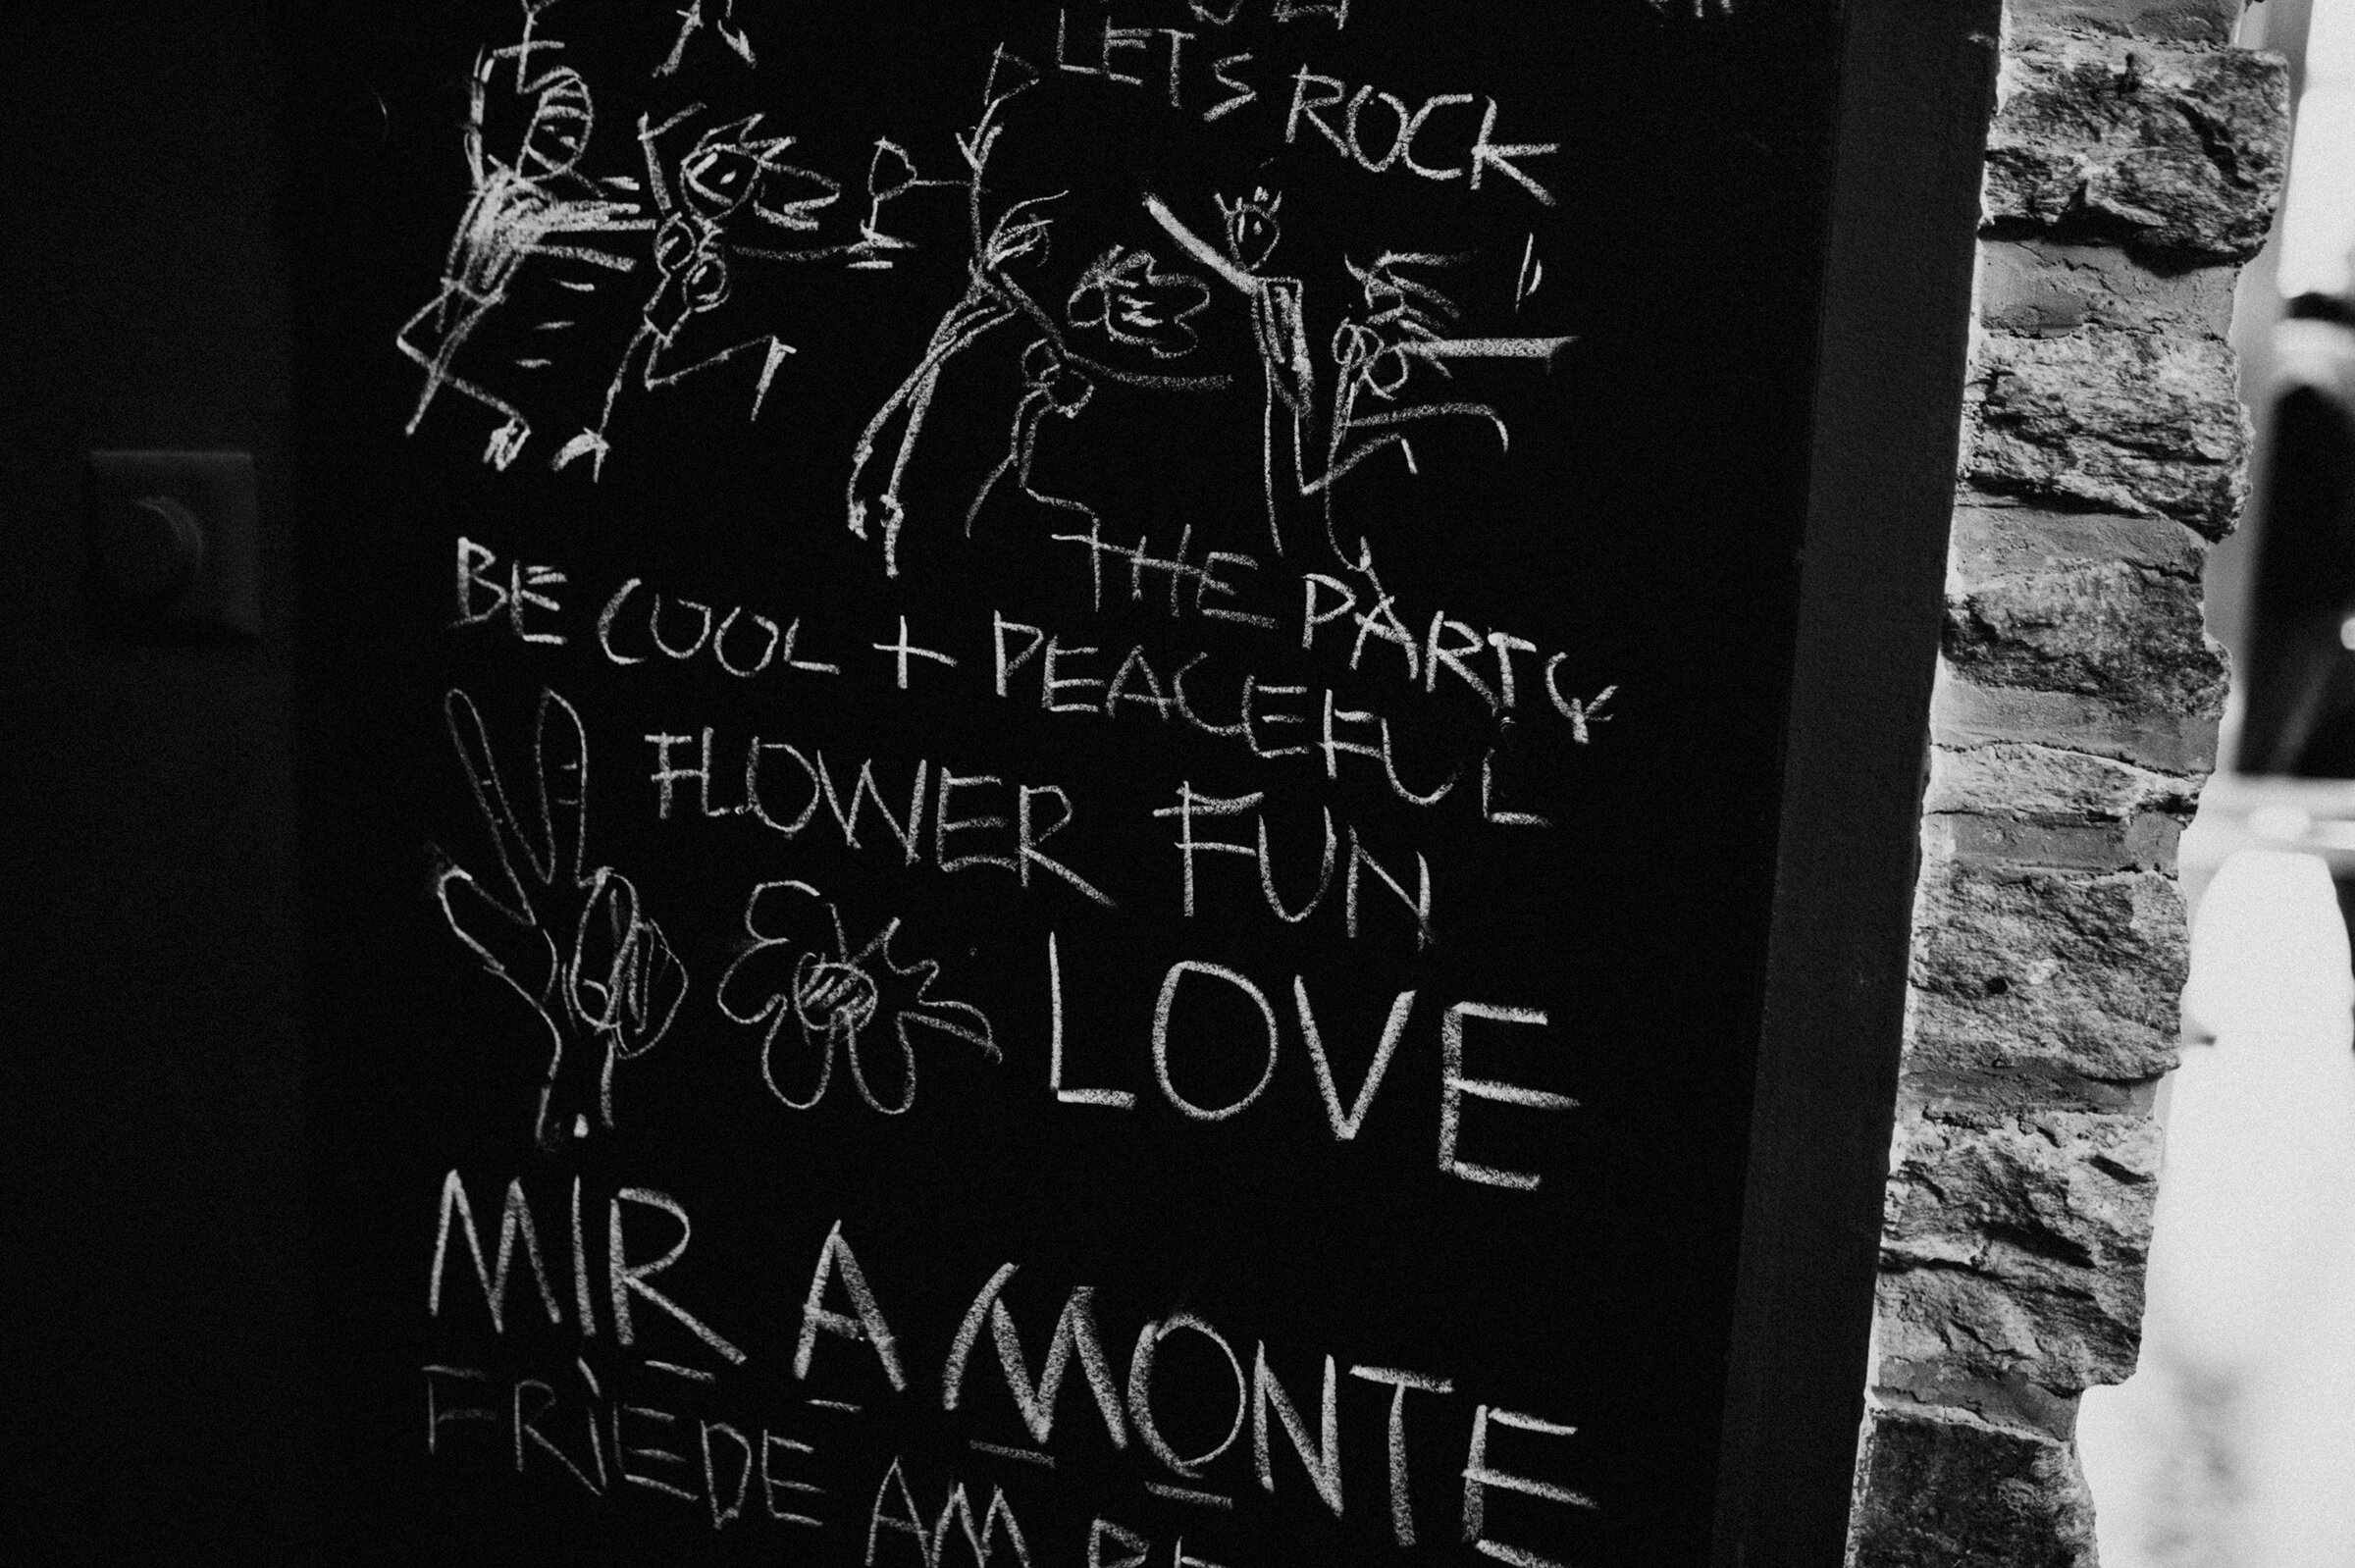 LETS ROCK
THE PARTY
BE COOL + PEACEFUL
FLOWER FUN
LOVE
MIR A MONTE
FRIEDE AM